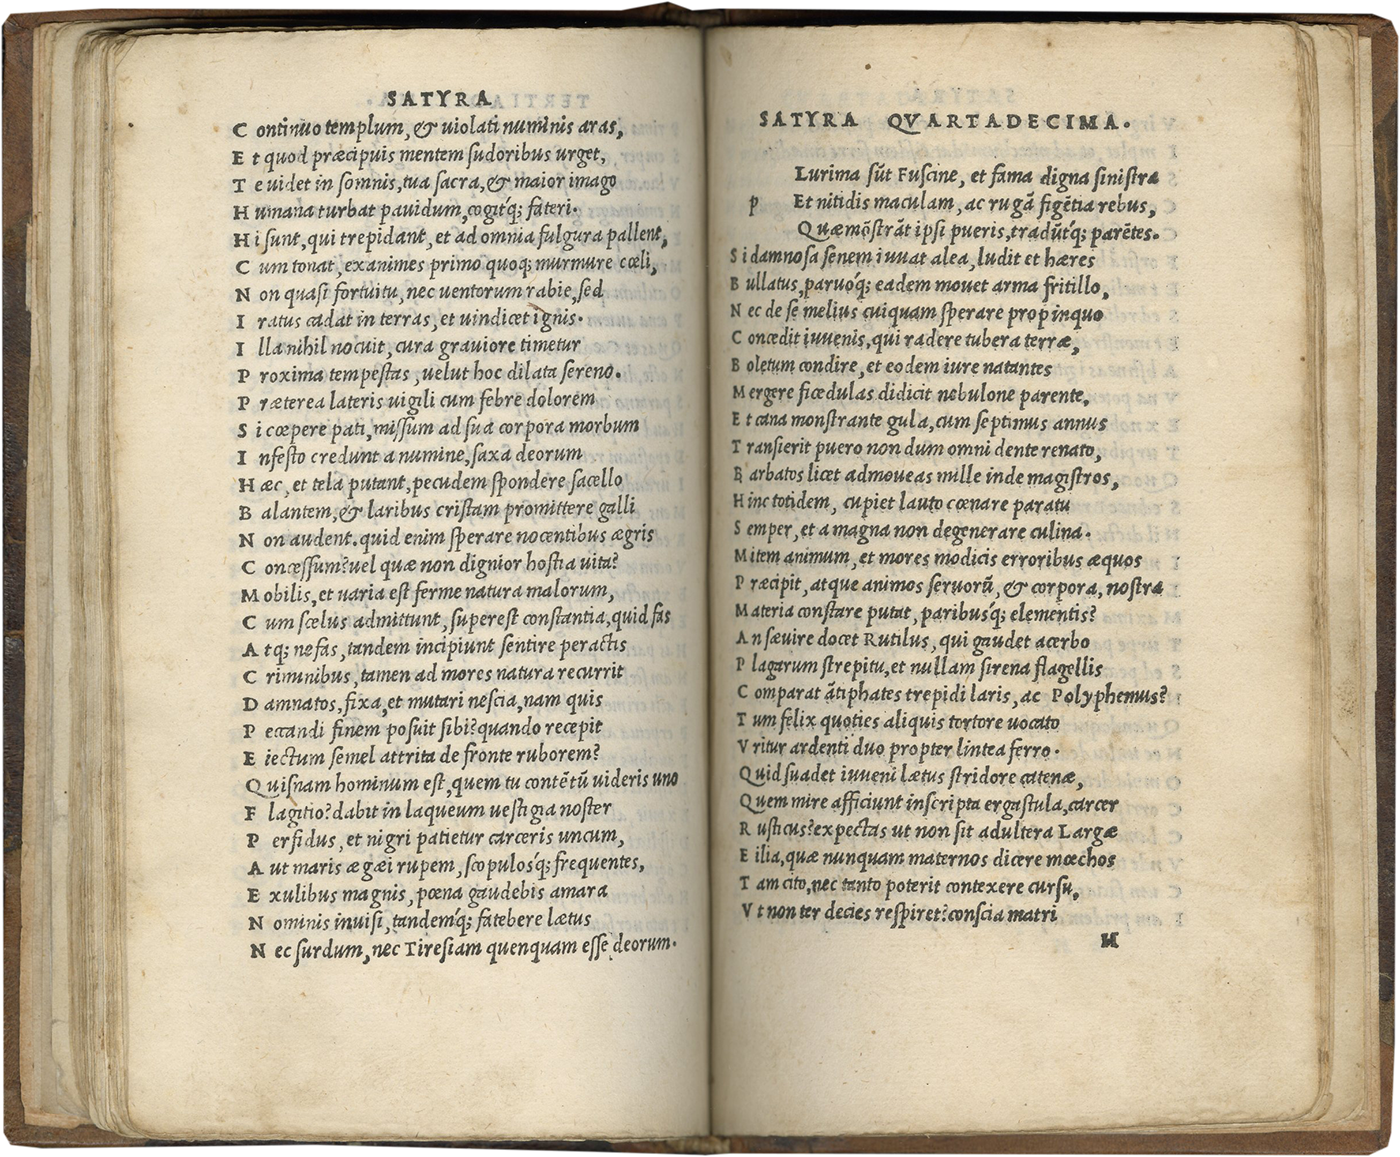 SATYRA
C ontinuo templum, & uiolati numinis aras,
E t quod præcipuis mentem sudoribus urget,
T e uidet in somnis, tua sacra, & maior imago
H umana turbat pauidum, cogitq; fateri.
H i sunt, qui trepidant, et ad omnia fulgura pallent,
C um tonat, exanimes primo quoq; murmure cœli,
N on quasi fortuitu, nec uentorum rabie, sed
I ratus cadat in terras, et uindicet ignis.
I lla nihil nocuit, cura grauiore timetur
P roxima tempestas, uelut hoc dilata sereno.
P ræterea lateris uigili cum febre dolorem
S i cœpere pati, missum ad sua corpora morbum
I nfesto credunt a numine, saxa deorum
H æc, et tela putant, pecudem spondere sacello
B alantem, & laribus cristam promittere galli
N on audent. quid enim sperare nocentibus ægris
C oncessum? uel quæ non dignior hostia uita?
M obilis, et uaria est ferme natura malorum,
C um scelus admittunt, superest constantia, quid fas
A tq; nefas, tandem incipiunt sentire peractis
C riminibus, tamen ad mores natura recurrit
D amnatos, fixa, et mutari nescia, nam quis
P eccandi finem posuit sibi? quando recepit
E iectum semel attrita de fronte ruborem?
Quisnam hominum est, quem tu contētū uideris uno
F lagitio? dabit in laqueum uestigia noster
P erfidus, et nigri patietur carceris uncum,
A ut maris ægæi rupem, scopulosq; frequentes,
E xulibus magnis, pœna gaudebis amara
N ominis inuisi, tandemq; fatebere lætus
N ec surdum, nec Tiresiam quenquam esse deorum.
SATYRA QVARTADECIMA.
p Lurima sūt Fuscine, et fama digna sinistra
Et nitidis maculam, ac rugā figētia rebus,
Quæ mōstrāt ipsi pueris, tradūtq; parētes.
S i damnosa senem iuuat alea, ludit et hæres
B ullatus, paruoq; eadem mouet arma fritillo,
N ec de se melius cuiquam sperare propinquo
C oncedit iuuenis, qui radere tubera terræ,
B oletum condire, et eodem iure natantes
M ergere ficedulas didicit nebulone parente,
E t cana monstrante gula, cum septimus annus
T ransierit puero non dum omni dente renato,
B arbatos licet admoueas mille inde magistros,
H inc totidem, cupiet lauto cœnare paratu
S emper, et a magna non degenerare culina.
M item animum, et mores modicis erroribus æquos
P ræcipit, atque animos seruorū, & corpora, nostra
M ateria constare putat, paribusq; elementis?
A n sæuire docet Rutilus, qui gaudet acerbo
P lagarum strepitu, et nullam sirena flagellis
C omparat ātiphates trepidi laris, ac Polyphemus?
T um felix quoties aliquis tortore uocato
V ritur ardenti duo propter lintea ferro.
Quid suadet iuueni lætus stridore catenæ,
Quem mire afficiunt inscripta ergastula, carcer
R usticus? expectas ut non sit adultera Largæ
E ilia, quæ nunquam maternos dicere mœchos
T am cito, nec tanto poterit contexere cursu,
V t non ter decies respiret? conscia matri
M